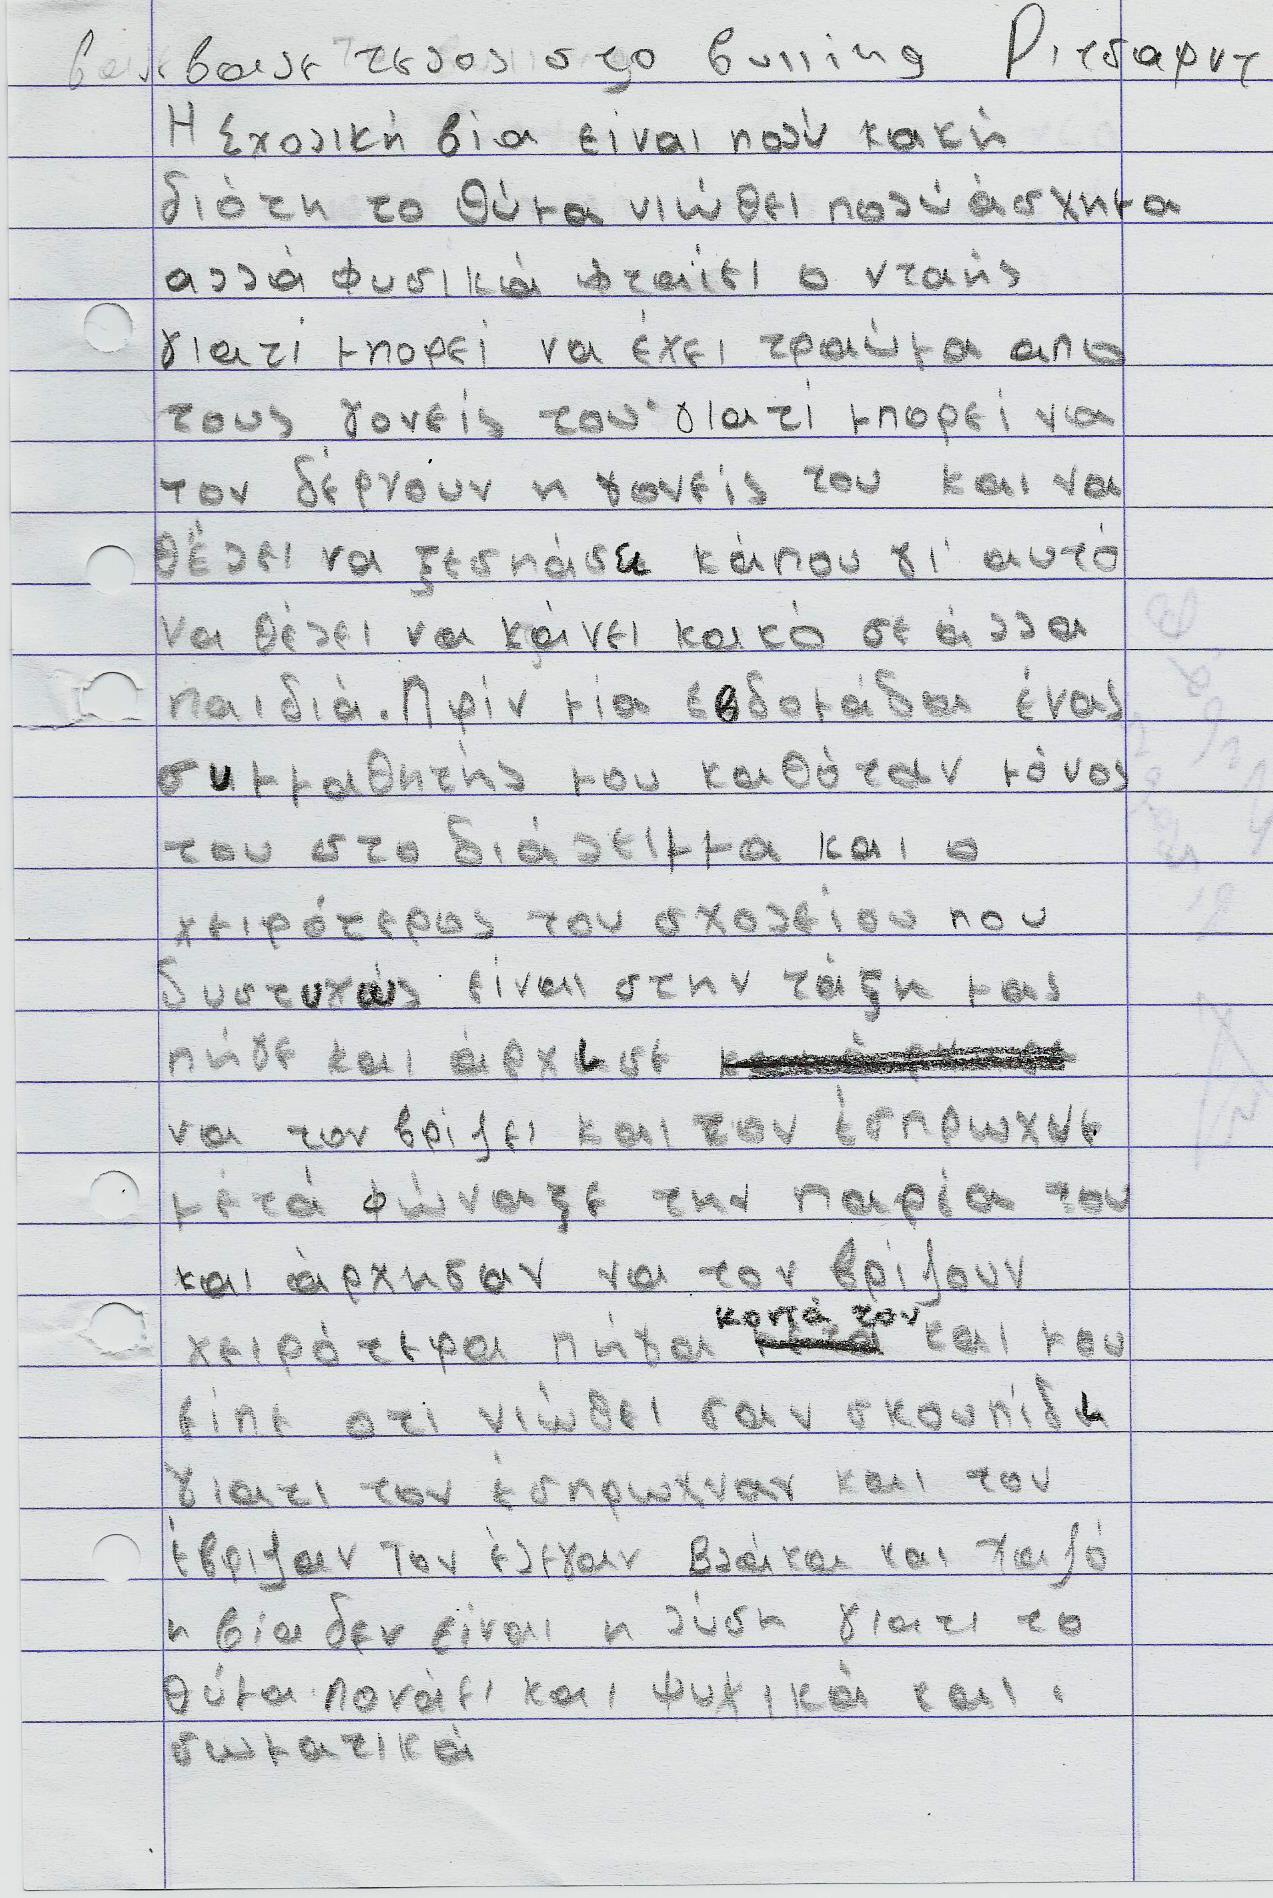 βαλε τελος στο bulling Ριτσαρντ
Η Σχολική βία είναι πολύ κακή
διότη το θύμα νιώθει πολύ άσχημα
αλλά φυσικά φταίει ο νταής
γιατί μπορεί να έχει τραώμα απω
τους γονείς του γιατί μπορεί να
τον δέρνουν η γονείς του και να
θέλει να ξεσπάσει κάπου γι' αυτό
να θέλει να κάνει κακό σε άλλα
παιδιά. Πρίν μία εβδομάδα ένας
συμμαθητής μου καθόταν μόνος
του στο διάλειμμα και ο
χειρότερος του σχολείου που
δυστυχώς είναι στην τάξη μας
πήγε και άρχισε
να τον βρίζει και τον έσπρωχνε
μετά φώναξε την παρέα του
και άρχησαν να τον βρίζουν
χειρότερα πήγα κοντά τον και μου
είπε οτι νιώθει σαν σκουπίδι
γιατι τον έσπρωχναν και τον
έβριζαν Τον έλεγαν βλάκα και χαζό
η βία δεν είναι η λύση γιατι το
θύμα πονάει και ψυχικά και
σωματικά